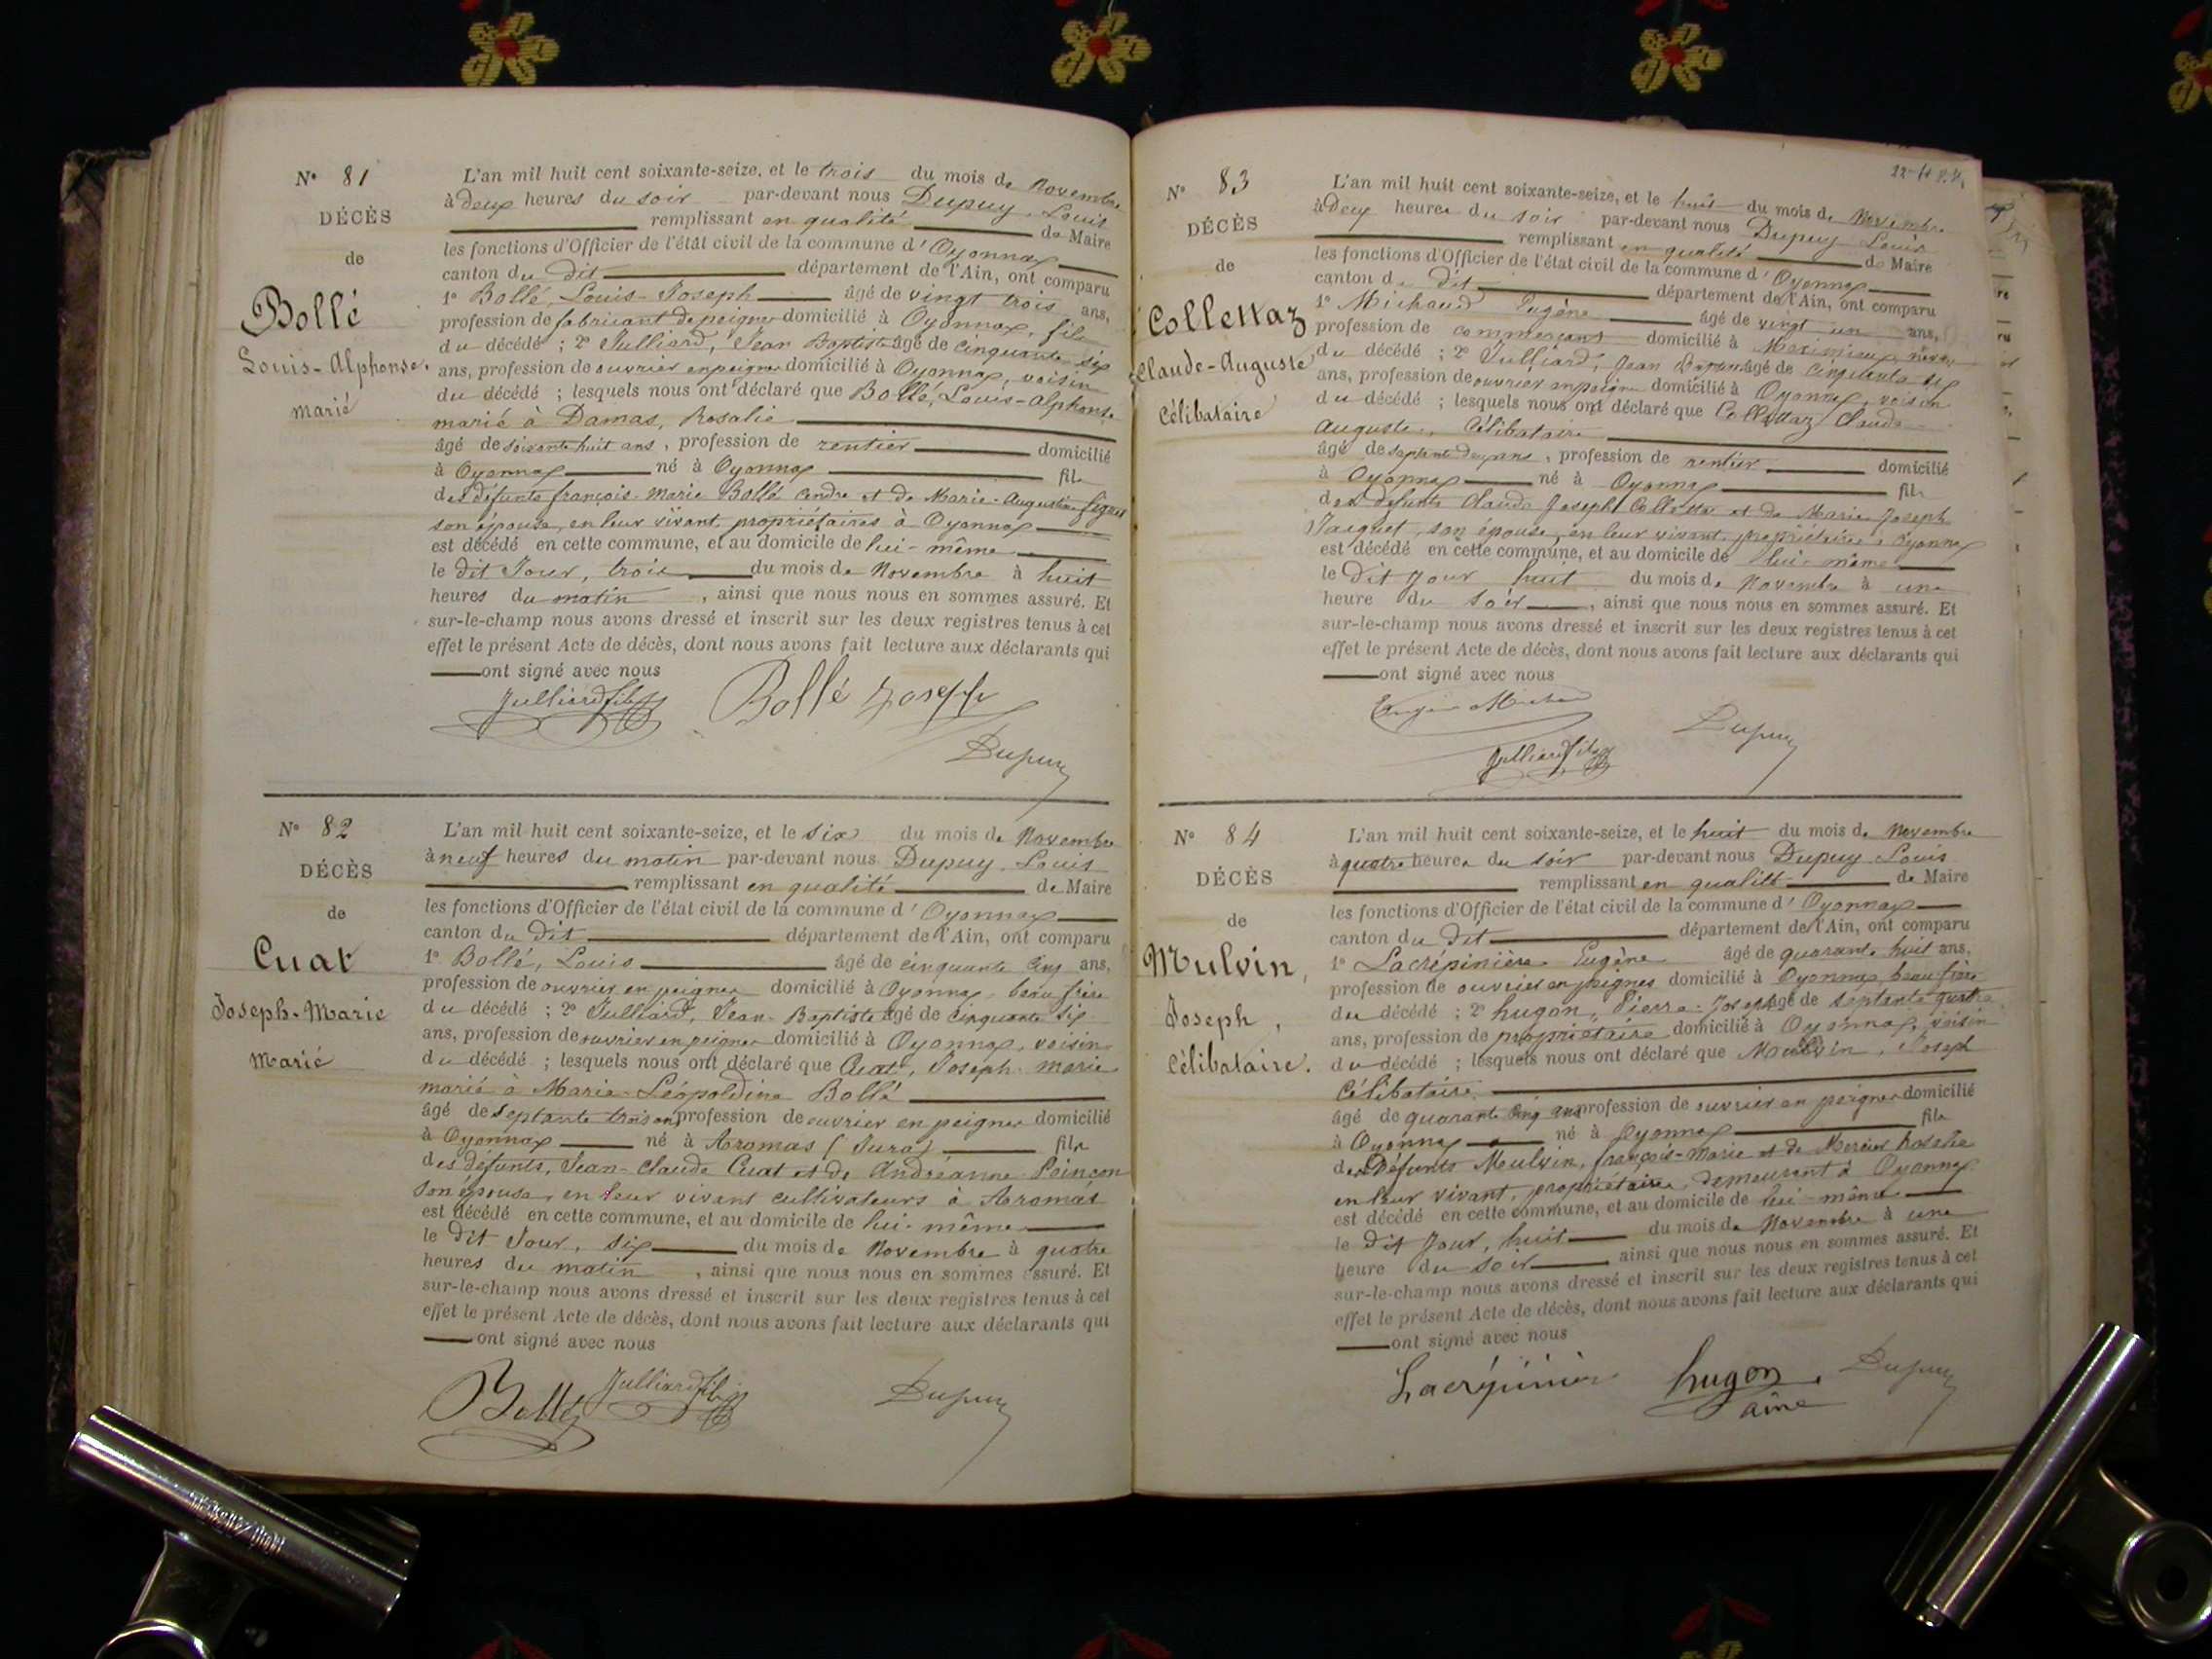 N° 81
DÉCÈS
de
Bollé
Louis-Alphonse.
marié
L'an mil huit cent soixante-seize, et le trois du mois de Novembre
à deux heures du soir par-devant nous Dupuy, Louis
remplissant en qualité de Maire
les fonctions d'Officier de l'état civil de la commune d'Oyonnax
canton du dit département de l'Ain, ont comparu
1° Bollé, Louis-Joseph âgé de vingt trois ans,
profession de fabricant de peignes domicilié à Oyonnax, fils
du décédé ; 2° Julliard, Jean Baptiste âgé de cinquante six
ans, profession de ouvrier en peignes domicilié à Oyonnax, voisin
du décédé ; lesquels nous ont déclaré que Bollé, Louis-Alphonse
marié à Damas, Rosalie
âgé de soixante huit ans, profession de rentier domicilié
à Oyonnax né à Oyonnax fils
des défunts françois-Marie Bollé Cendre et de Marie-Augustine
son épouse, en leur vivant, propriétaires à Oyonnax
est décédé en cette commune, et au domicile de lui-même
le dit Jour, trois du mois de Novembre à huit
heures du matin, ainsi que nous nous en sommes assuré. Et
sur-le-champ nous avons dressé et inscrit sur les deux registres tenus à cet
effet le présent Acte de décès, dont nous avons fait lecture aux déclarants qui
ont signé avec nous
Julliard fils Bollé Joseph
Dupuy
N° 82
DÉCÈS
de
Cuat
Joseph-Marie
Marié
L'an mil huit cent soixante-seize, et le six du mois de Novembre
à neuf heures du matin par-devant nous Dupuy, Louis
remplissant en qualité de Maire
les fonctions d'Officier de l'état civil de la commune d'Oyonnax
canton du dit département de l'Ain, ont comparu
1° Bollé, Louis âgé de cinquante cinq ans,
profession de ouvrier en peignes domicilié à Oyonnax, beau frère
du décédé ; 2° Julliard, Jean-Baptiste âgé de cinquante six
ans, profession de ouvrier en peignes domicilié à Oyonnax, voisin
du décédé ; lesquels nous ont déclaré que Cuat, Joseph-marie
marié à Marie-Léopoldine Bollé
âgé de septante trois ans, profession de ouvrier en peignes domicilié
à Oyonnax né à Aromas (Jura) fils
des défunts, Jean-Claude Cuat et de Andréanne Poinçon
son épouse, en leur vivant cultivateurs à Aromas
est décédé en cette commune, et au domicile de lui-même
le dit Jour, six du mois de Novembre à quatre
heures du matin, ainsi que nous nous en sommes assuré. Et
sur-le-champ nous avons dressé et inscrit sur les deux registres tenus à cet
effet le présent Acte de décès, dont nous avons fait lecture aux déclarants qui
ont signé avec nous
Bollé Julliard fils Dupuy
N° 83
DÉCÈS
de
Collettaz
Claude-Auguste
Célibataire
L'an mil huit cent soixante-seize, et le huit du mois de Novembre
à deux heures du soir par-devant nous Dupuy Louis
remplissant en qualité de Maire
les fonctions d'Officier de l'état civil de la commune d'Oyonnax
canton du dit département de l'Ain, ont comparu
1° Michaud Eugène âgé de vingt un ans,
profession de commerçant domicilié à Meximieux, neveu
du décédé ; 2° Julliard, Jean Baptiste âgé de cinquante six
ans, profession de ouvrier en peignes domicilié à Oyonnax, voisin
du décédé ; lesquels nous ont déclaré que Collettaz Claude
Auguste, Célibataire
âgé de septante deux ans, profession de rentier domicilié
à Oyonnax né à Oyonnax fils
des défunts Claude Joseph Collettaz et de Marie Joseph
Jacquet, son épouse, en leur vivant, propriétaires à Oyonnax
est décédé en cette commune, et au domicile de lui-même
le dit Jour huit du mois de Novembre à une
heure du soir, ainsi que nous nous en sommes assuré. Et
sur-le-champ nous avons dressé et inscrit sur les deux registres tenus à cet
effet le présent Acte de décès, dont nous avons fait lecture aux déclarants qui
ont signé avec nous
Eugène Michaud
Dupuy
Julliard fils
N° 84
DÉCÈS
de
Mulvin,
Joseph,
Célibataire.
L'an mil huit cent soixante-seize, et le huit du mois de Novembre
à quatre heures du soir par-devant nous Dupuy Louis
remplissant en qualité de Maire
les fonctions d'Officier de l'état civil de la commune d'Oyonnax
canton du dit département de l'Ain, ont comparu
1° Lacrépinière Eugène âgé de quarante huit ans,
profession de ouvrier en peignes domicilié à Oyonnax beau frère
du décédé ; 2° hugon, Pierre-Joseph âgé de septante quatre
ans, profession de propriétaire domicilié à Oyonnax, voisin
du décédé ; lesquels nous ont déclaré que Mulvin, Joseph
Célibataire,
âgé de quarante cinq ans profession de ouvrier en peignes domicilié
à Oyonnax né à Oyonnax fils
des Défunts Mulvin, françois-Marie et de Mercier Rosalie
en leur vivant, propriétaires, demeurant à Oyonnax
est décédé en cette commune, et au domicile de lui-même
le dit Jour, huit du mois de Novembre à une
heure du soir ainsi que nous nous en sommes assuré. Et
sur-le-champ nous avons dressé et inscrit sur les deux registres tenus à cet
effet le présent Acte de décès, dont nous avons fait lecture aux déclarants qui
ont signé avec nous
Lacrépinière hugon Dupuy
ainé